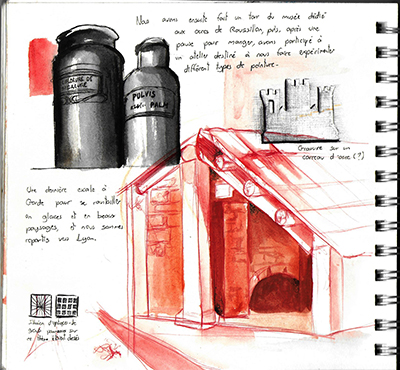 Nous avons ensuite fait un tour du musée dédié
aux ocres de Roussillon, puis, après une
pause pour manger, avons participé à
un atelier destiné à nous faire expérimenter
différents types de peinture.
PULVIS
PALM
Gravure sur un
carreau d'ocre (?)
Une dernière escale à
Gorde pour se ravitailler
en glaces et en beaux
paysages, et nous sommes
repartis vers Lyon.